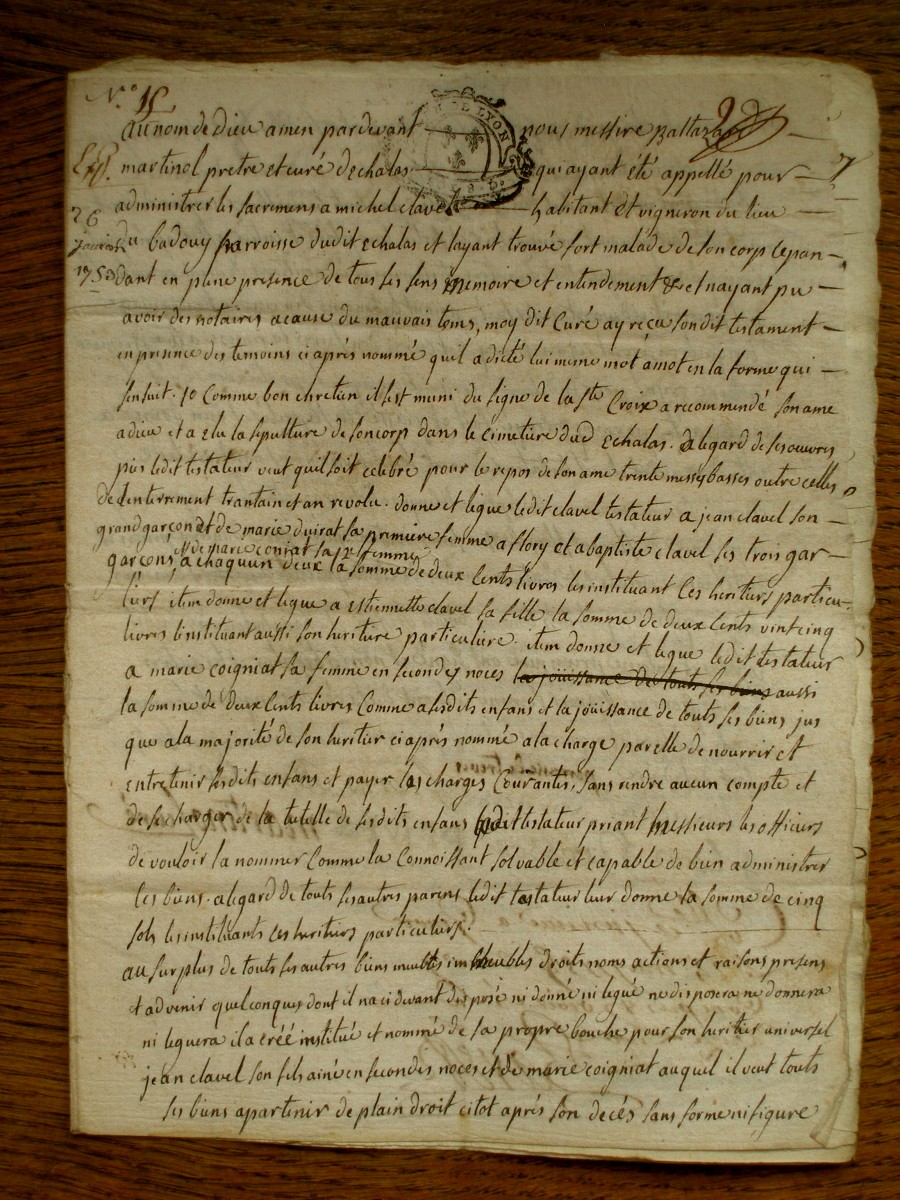 N.° 15
au nom de dieu amen pardevant nous messire Baltazard
Exp. martinol pretre et curé dechalas qui ayant été appellé pour
administrer les sacremens a michel clavel habitant et vigneron du lieu
26
du badouy parroisse dudit echalas et layant trouvé fort malade de son corp cepan-
janvier
1753
dant en pleine presence de tous ses sens memoire et entendement et nayant pu
avoir des notaires acause du mauvais tems, moy dit Curé ay reçu son dit testament
en presence des temoins ci après nommé quil a dicté lui meme mot amot en la forme qui
sensuit. 1o Comme bon chretien il sest muni du signe de la Ste Croix a recommendé son ame
a dieu et a elu la sepulture de son corp dans le cimetière dud echalas. a legard de ses œuvres
pies ledit testateur veut quil soit célébré pour le repos de son ame trente messes basses outre celles
de lenterrement trantain et an revolu. donne et legue ledit clavel testateur a jean clavel son
grand garçon et de marie duirat sa premiere femme a flory et a baptiste clavel ses trois gar-
et de marie coniat sa 2e femme
garçons, a chaquun deux la somme de deux cents livres les instituant ses heritiers particu-
liers item donne et legue a estiennette clavel sa fille la somme de deux cents vint cinq
livres linstituant aussi son heritiere particuliere. item donne et legue ledit testateur
a marie coigniat sa femme en secondes noces la joüissance de touts ses biens aussi
la somme de deux cents livres Comme a sesdits enfans et la joüissance de touts ses biens jus
que a la majorité de son heritier ci après nommé a la charge par elle de nourrir et
entretenir sesdits enfans et payer les charges Courantes, sans rendre aucun compte et
de se charger de la tutelle de sesdits enfans ledit testateur priant messieurs les officiers
de vouloir la nommer Comme la Connoissant solvable et capable de bien administrer
ses biens. a legard de touts ses autres parens ledit testateur leur donne la somme de cinq
sols les instituants ses heritiers particuliers.
au surplus de touts ses autres biens meubles immeubles droits noms actions et raisons presens
et advenir quelconques dont il na ci devant disposé ni donné ni legué ne disposera ne donnera
ni leguera il a créé institué et nommé de sa propre bouche pour son heritier universel
jean clavel son fils ainé en secondes noces et de marie coigniat auquel il veut touts
ses biens apartenir de plain droit citot après son decés sans forme ni figure